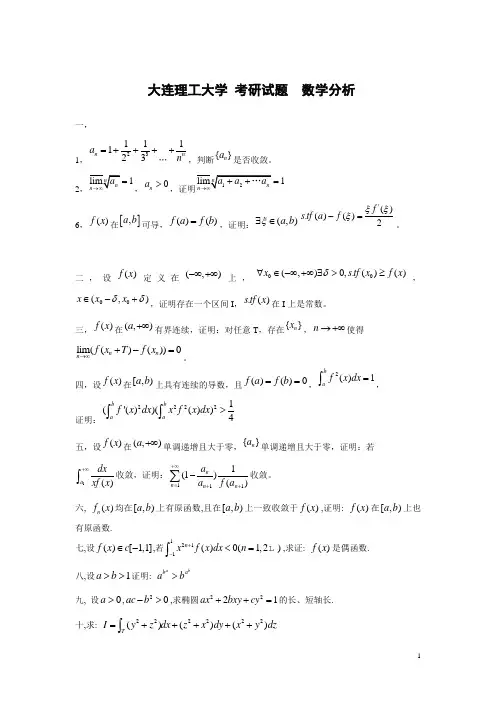 大连理工大学 考研试题 数学分析
一,
1, $a_n = 1 + \frac{1}{2^2} + \frac{1}{3^3} + \dots + \frac{1}{n^n}$, 判断 $\{a_n\}$ 是否收敛。
2, $\lim_{n\to\infty} \sqrt[n]{a_n} = 1$, $a_n > 0$, 证明 $\lim_{n\to\infty} \sqrt[n]{a_1 + a_2 + \cdots a_n} = 1$
6, $f(x)$ 在 $[a,b]$ 可导, $f(a) = f(b)$。证明: $\exists \xi \in (a,b)$ $s.t f(a) - f(\xi) = \frac{\xi f'(\xi)}{2}$。
二, 设 $f(x)$ 定义在 $(-\infty,+\infty)$ 上, $\forall x_0 \in (-\infty,+\infty) \exists \delta > 0, s.t f(x_0) \ge f(x)$,
$x \in (x_0 - \delta, x_0 + \delta)$, 证明存在一个区间 I, $s.t f(x)$ 在 I 上是常数。
三, $f(x)$ 在 $(a,+\infty)$ 有界连续, 证明: 对任意 T, 存在 $\{x_n\}$, $n \to +\infty$ 使得
$\lim_{n\to\infty} (f(x_n + T) - f(x_n)) = 0$。
四, 设 $f(x)$ 在 $[a,b)$ 上具有连续的导数, 且 $f(a) = f(b) = 0$, $\int_a^b f^2(x)dx = 1$,
证明: $(\int_a^b f'(x)^2 dx)(\int_a^b x^2 f(x)^2 dx) > \frac{1}{4}$
五, 设 $f(x)$ 在 $(a,+\infty)$ 单调递增且大于零, $\{a_n\}$ 单调递增且大于零, 证明: 若
$\int_{a_1}^{+\infty} \frac{dx}{xf(x)}$ 收敛, 证明: $\sum_{n=1}^{+\infty} (1 - \frac{a_n}{a_{n+1}}) \frac{1}{f(a_{n+1})}$ 收敛。
六, $f_n(x)$ 均在 $[a,b)$ 上有原函数,且在 $[a,b)$ 上一致收敛于 $f(x)$ ,证明: $f(x)$ 在 $[a,b)$ 上也
有原函数.
七,设 $f(x) \in c[-1,1]$,若 $\int_{-1}^{1} x^{2n+1} f(x)dx < 0 (n = 1,2$ L $)$ ,求证: $f(x)$ 是偶函数.
八,设 $a > b > 1$ 证明: $a^{b^a} > b^{a^b}$
九, 设 $a > 0$, $ac - b^2 > 0$ ,求椭圆 $ax^2 + 2bxy + cy^2 = 1$ 的长、短轴长.
十,求: $I = \int_T (y^2 + z^2)dx + (z^2 + x^2)dy + (x^2 + y^2)dz$
1